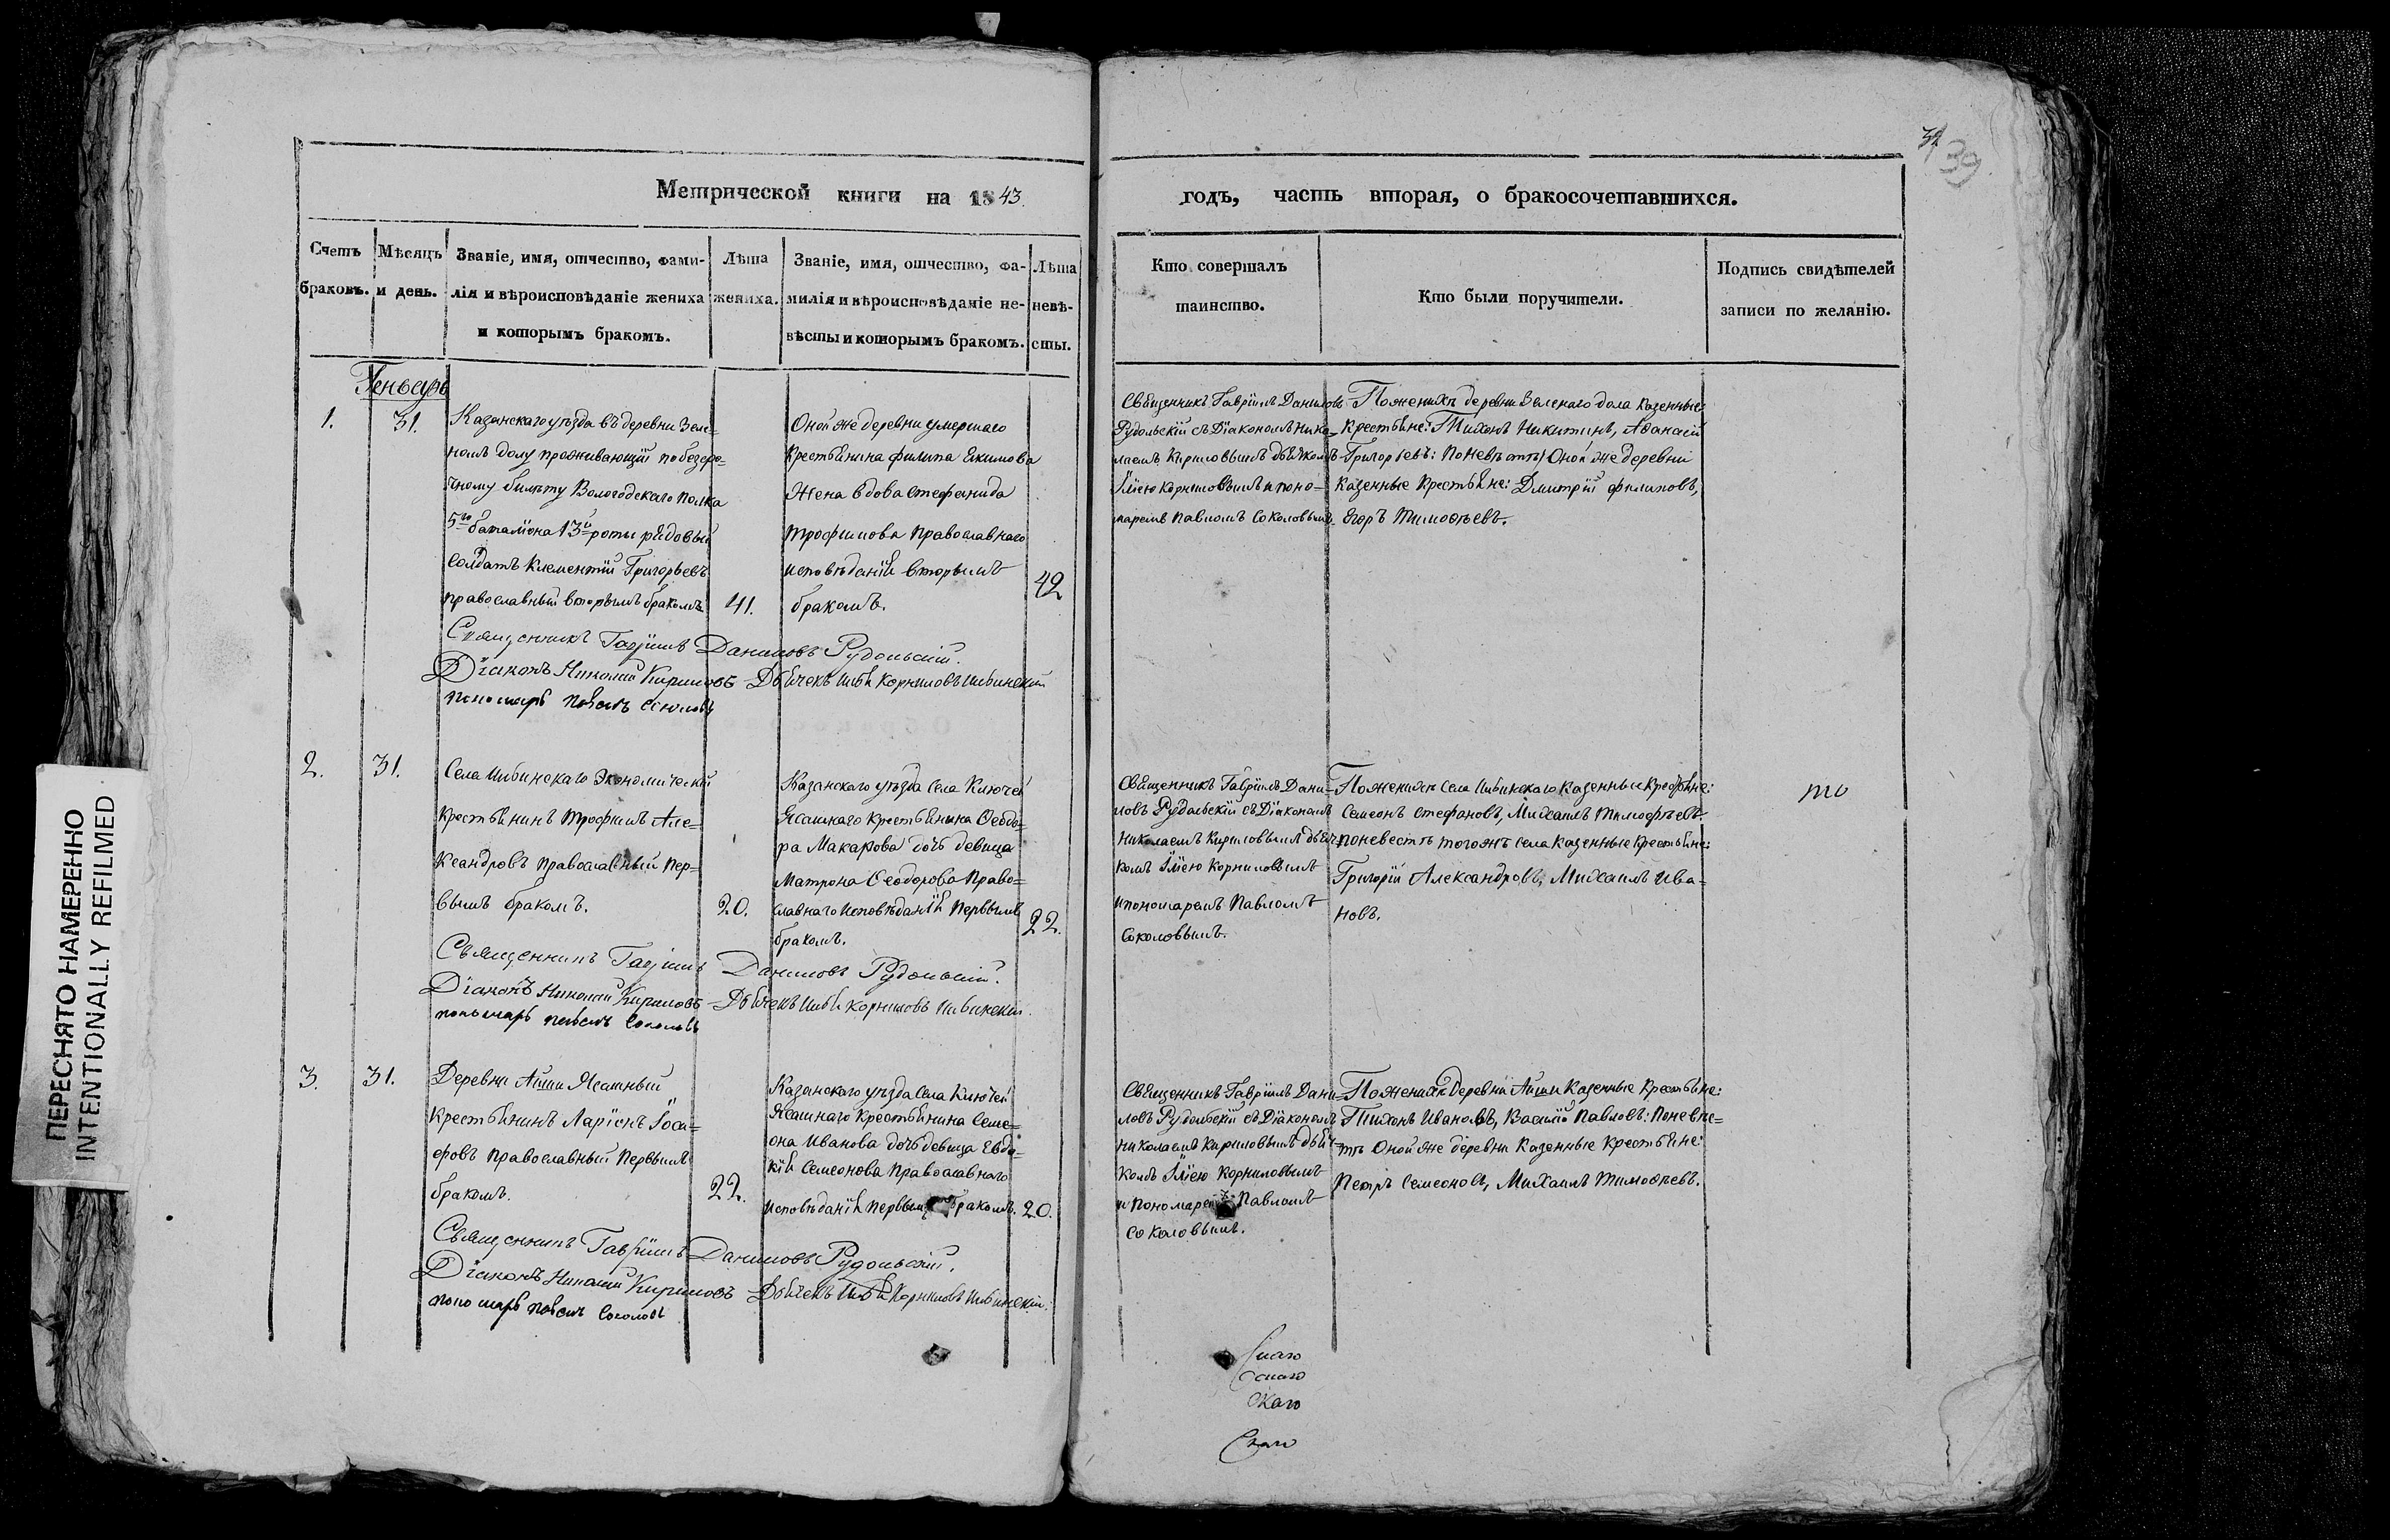 39
Метрической книги на 1843. годъ, часть вторая, о бракосочетавшихся.
Счетъ браковъ.
Мѣсяцъ и день.
Званіе, имя, отчество, фами-
лія и вѣроисповѣданіе жениха
и которымъ бракомъ.
Лѣта жениха.
Званіе, имя, отчество, фа-
милія и вѣроисповѣданіе не-
вѣсты и которымъ бракомъ.
Лѣта невѣ-
сты.
Кто совершалъ
таинство.
Кто были поручители.
Подпись свидѣтелей
записи по желанію.
Генварь
1.
31.
Казанскаго уѣзда въ деревни Зеле=
номъ долу проживающій по безсро=
чному билѣту Вологодскаго полка
5го баталіона 13й роты рядовый
Солдатъ Клементій Григорьевъ
православный вторымъ бракомъ.
41.
Оной же деревни умершаго
Крестьянина Филипа Екимова
жена вдова Стефанида
Трофимова Православнаго
исповѣданія вторымъ
бракомъ.
42
Священникъ Гавріилъ Даниловъ
Рудольскій съ Діакономъ Нико=
лаемъ Кириловымъ дьячкомъ
Иліею Корниловымъ и поно=
маремъ Павломъ Соколовымъ.
По женихѣ деревни Зеленаго дола Казенные
Крестьяне: Тихонъ Никитинъ, Афанасій
Григорьевъ: По невѣстѣ Оной же деревни
Казенные Крестьяне: Дмитрій Филиповъ,
Егоръ Тимофѣевъ.
Священникъ Гавріилъ Даниловъ Рудольскій.
Діаконъ Николай Кириловъ Дьячекъ Илья Корниловъ Ивинскій
пономарь Павелъ Соколовъ
2.
31.
Села Ивинскаго Экономическій
Крестьянинъ Трофимъ Але=
ксандровъ православный пер=
вымъ бракомъ.
20.
Казанскаго уѣзда Села Ключей
Ясашнаго Крестьянина Ѳеодо=
ра Макарова дочь девица
Матрона Ѳеодорова Право=
славнаго исповѣданія первымъ
бракомъ.
22.
Священникъ Гавріилъ Дани=
ловъ Рудольскій съ Діакономъ
Николаемъ Кириловымъ дьяч=
комъ Иліею Корниловымъ
и пономаремъ Павломъ
Соколовымъ.
По женихѣ Села Ивинскаго Казенные Крестьяне:
Семеонъ Стефановъ, Михаилъ Тимофѣевъ
по невестѣ тогожъ села Казенные Крестьяне:
Григорій Александровъ, Михаилъ Ива=
новъ.
Священникъ Гавріилъ Даниловъ Рудольскій.
Діаконъ Николай Кириловъ Дьячекъ Илья Корниловъ Ивинскій.
пономарь Павелъ Соколовъ
3.
31.
Деревни Айши Ясашный
Крестьянинъ Ларіонъ Іоси=
фовъ Православный Первымъ
бракомъ.
22.
Казанскаго уѣзда Села Ключей
Ясашнаго Крестьянина Семе=
она Иванова дочь девица Евдо=
кія Семеонова Православнаго
исповѣданія первымъ бракомъ.
20.
Священникъ Гавріилъ Дани=
ловъ Рудольскій съ Діакономъ
Николаемъ Кириловымъ дьяч=
комъ Иліею Корниловымъ
и Пономаремъ Павломъ
Соколовымъ.
По женихѣ Деревни Айши Казенные Крестьяне:
Тихонъ Ивановъ, Василій Павловъ: По невѣс=
тѣ Оной же деревни Казенные Крестьяне:
Петръ Семеоновъ, Михаилъ Тимофѣевъ.
Священникъ Гавріилъ Даниловъ Рудольскій.
Діаконъ Николай Кириловъ Дьячекъ Илья Корниловъ Ивинскій.
пономарь Павелъ Соколовъ
ПЕРЕСНЯТО НАМЕРЕННО
INTENTIONALLY REFILMED